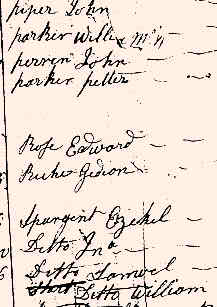 piper John
parker Will
perren John
parker petter
Rose Edward
Gedion
Spargent Ezekel
Ditto Jno
Ditto Samuel
Ditto William